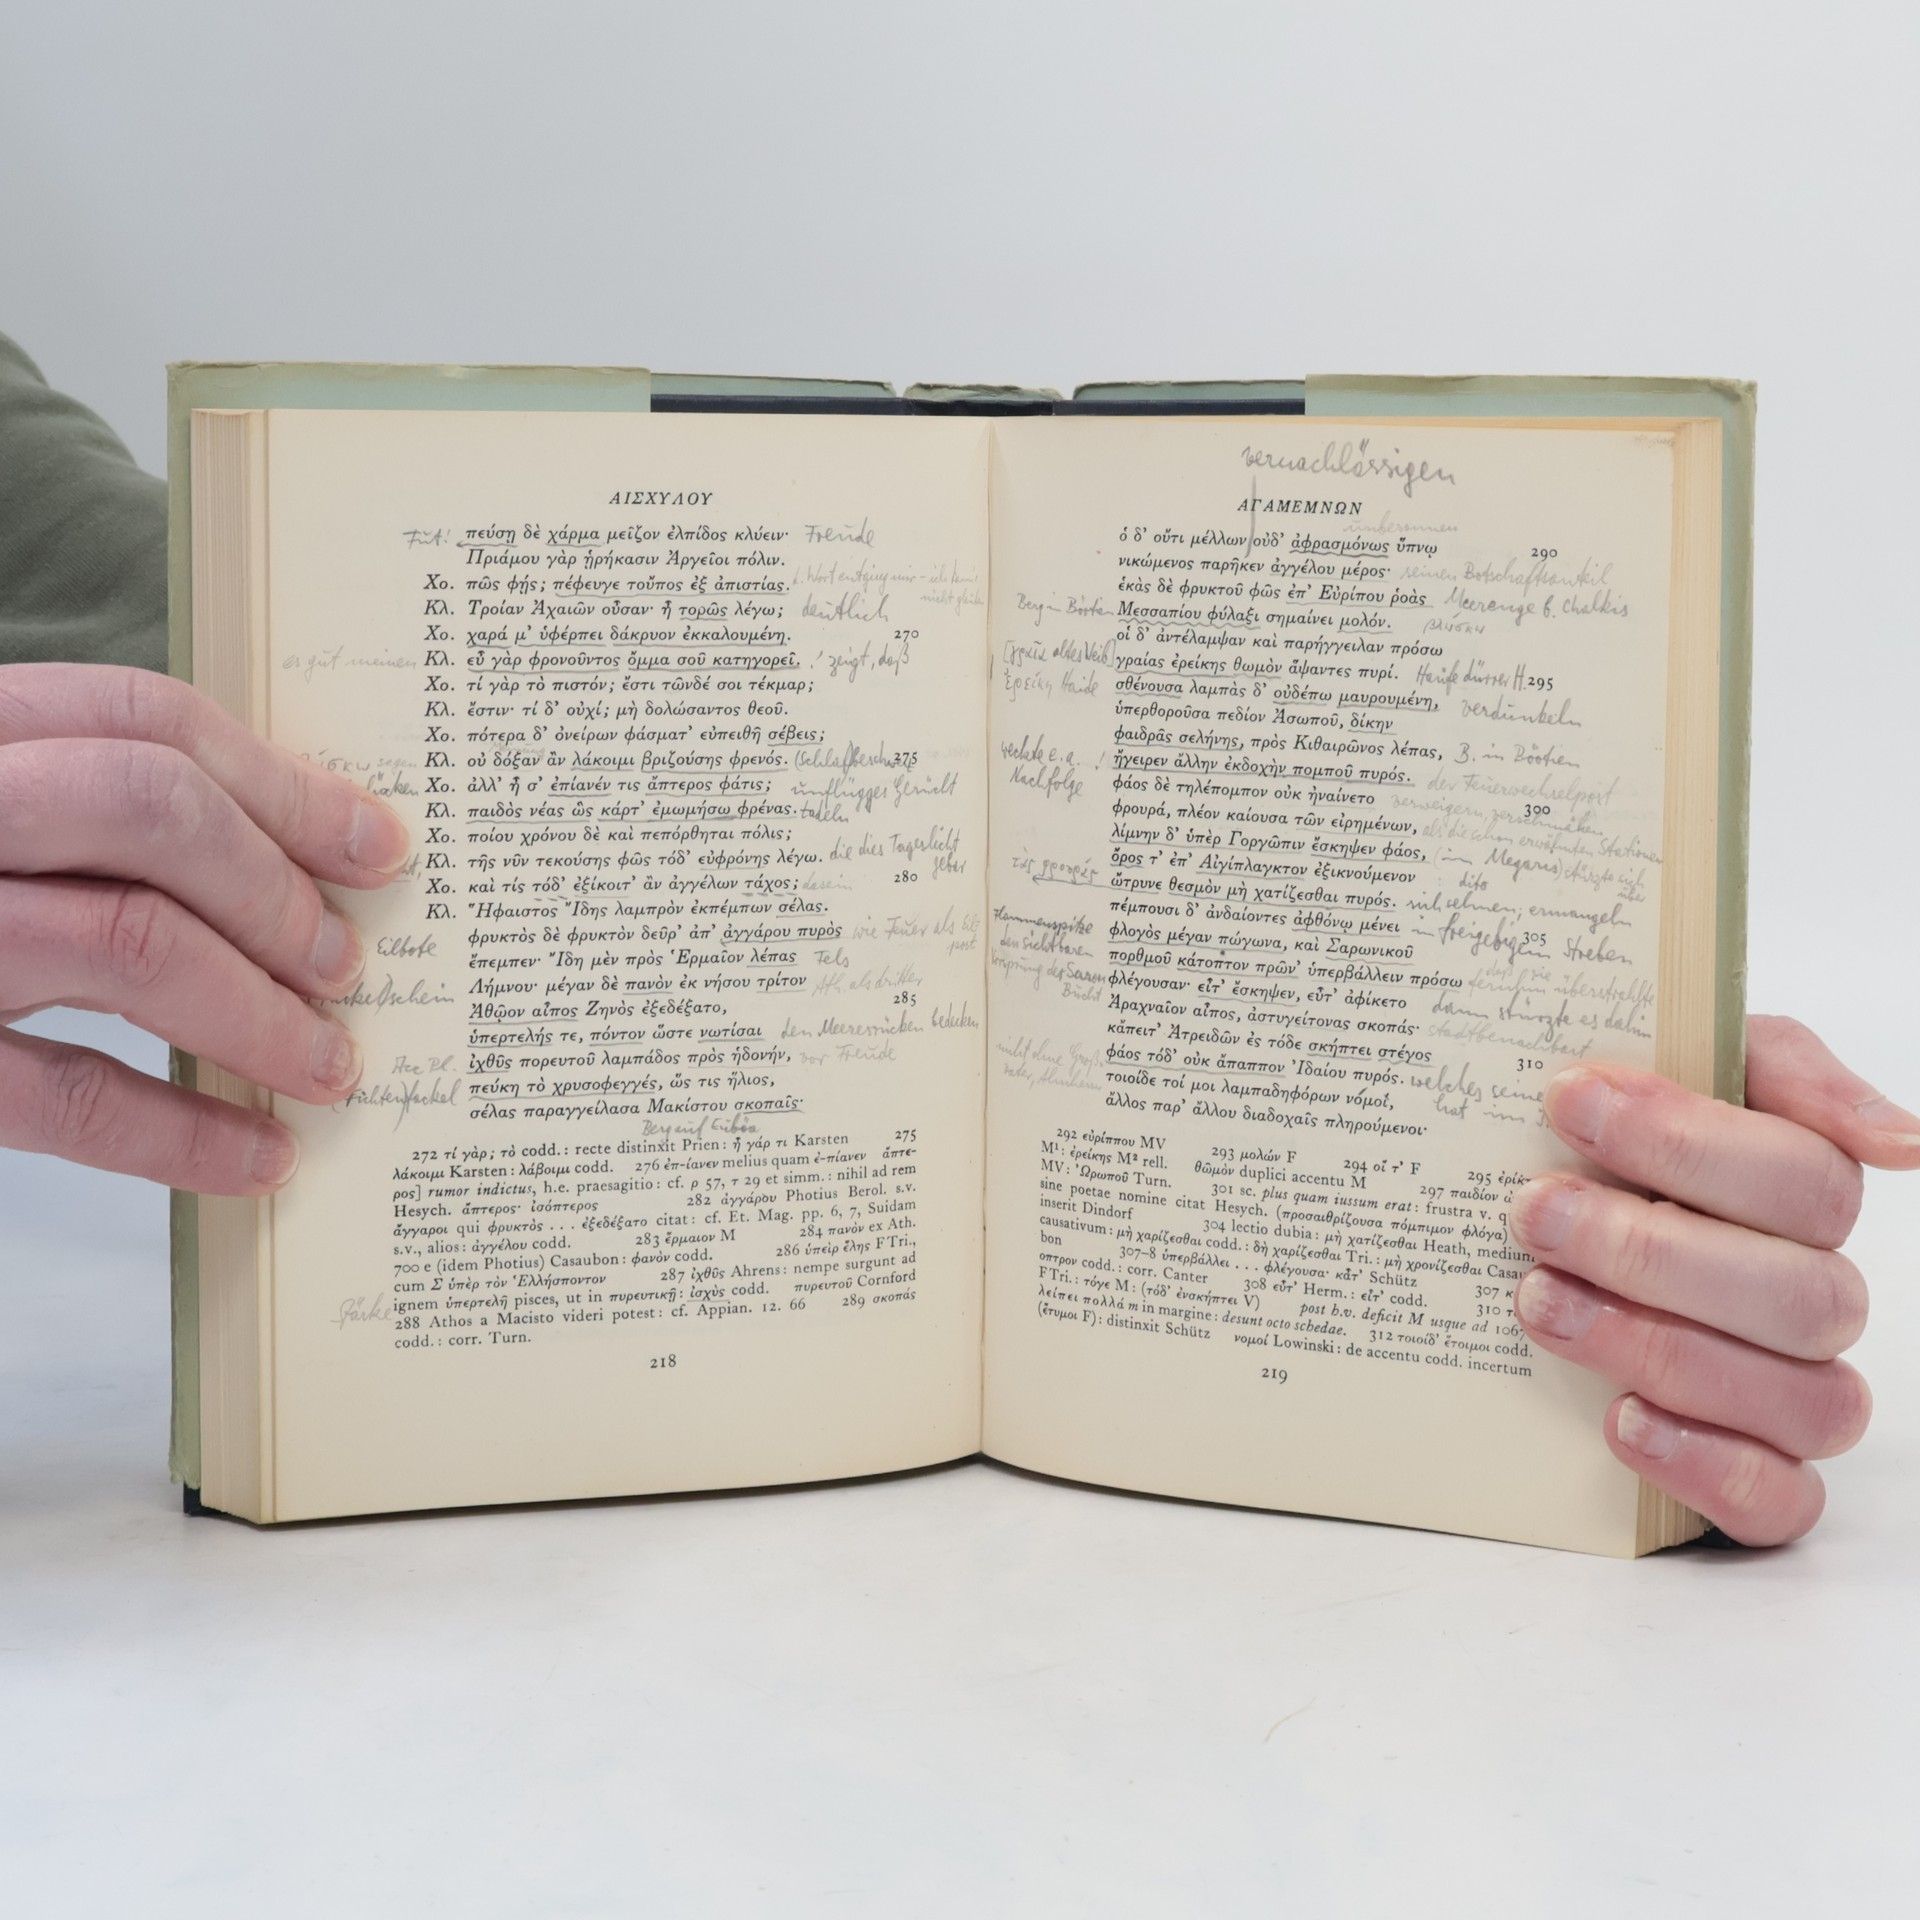 ΑΙΣΧΥΛΟΥ
Fut! πεύσῃ δὲ χάρμα μεῖζον ἐλπίδος κλύειν· Freude
Πριάμου γὰρ ᾑρήκασιν Ἀργεῖοι πόλιν.
Χο. πῶς φῄς; πέφευγε τοὔπος ἐξ ἀπιστίας. Wort entging mir
Κλ. Τροίαν Ἀχαιῶν οὖσαν· ἦ τορῶς λέγω; deutlich
Χο. χαρά μ' ὑφέρπει δάκρυον ἐκκαλουμένη. 270
es gut meinen Κλ. εὖ γὰρ φρονοῦντος ὄμμα σοῦ κατηγορεῖ. ! zeigt, daß
Χο. τί γὰρ τὸ πιστόν; ἔστι τῶνδέ σοι τέκμαρ;
Κλ. ἔστιν· τί δ' οὐχί; μὴ δολώσαντος θεοῦ.
Χο. πότερα δ' ὀνείρων φάσματ' εὐπειθῆ σέβεις;
Κλ. οὐ δόξαν ἂν λάκοιμι βριζούσης φρενός. 275
Χο. ἀλλ' ἦ σ' ἐπίανέν τις ἄπτερος φάτις; unflügges Gerücht
Κλ. παιδὸς νέας ὣς κάρτ' ἐμωμήσω φρένας. tadeln
Χο. ποίου χρόνου δὲ καὶ πεπόρθηται πόλις;
Κλ. τῆς νῦν τεκούσης φῶς τόδ' εὐφρόνης λέγω. die dies Tageslicht gebar
Χο. καὶ τίς τόδ' ἐξίκοιτ' ἂν ἀγγέλων τάχος; 280
Κλ. Ἥφαιστος Ἴδης λαμπρὸν ἐκπέμπων σέλας.
φρυκτὸς δὲ φρυκτὸν δεῦρ' ἀπ' ἀγγάρου πυρὸς wie Feuer als Eilpost
Eilbote ἔπεμπεν· Ἴδη μὲν πρὸς Ἑρμαῖον λέπας Fels
Λήμνου· μέγαν δὲ πανὸν ἐκ νήσου τρίτον Ath. als dritter
schein Ἀθῷον αἶπος Ζηνὸς ἐξεδέξατο, 285
ὑπερτελής τε, πόντον ὥστε νωτίσαι den Meeresrücken bedecken
Acc Pl. ἰχθῦς πορευτοῦ λαμπάδος πρὸς ἡδονήν, vor Freude
(Fichten)fackel πεύκη τὸ χρυσοφεγγές, ὥς τις ἥλιος,
σέλας παραγγείλασα Μακίστου σκοπαῖς·
Berg auf Euböa
272 τί γάρ; τὸ codd.: recte distinxit Prien: ἦ γάρ τι Karsten 275
λάκοιμι Karsten: λάβοιμι codd. 276 ἐπ-ίανεν melius quam ἐ-πίανεν ἄπτε-
ρος] rumor indictus, h.e. praesagitio: cf. ρ 57, τ 29 et simm.: nihil ad rem
Hesych. ἄπτερος· ἰσόπτερος 282 ἀγγάρου Photius Berol. s.v.
ἄγγαροι qui φρυκτὸς . . . ἐξεδέξατο citat: cf. Et. Mag. pp. 6, 7, Suidam
s.v., alios: ἀγγέλου codd. 283 ἕρμαιον M 284 πανὸν ex Ath.
700 e (idem Photius) Casaubon: φανὸν codd. 286 ὑπεὶρ ἕλης F Tri.,
cum Σ ὑπὲρ τὸν Ἑλλήσποντον 287 ἰχθῦς Ahrens: nempe surgunt ad
ignem ὑπερτελῆ pisces, ut in πυρευτικῇ: ἰσχὺς codd. πυρευτοῦ Cornford
288 Athos a Macisto videri potest: cf. Appian. 12. 66 289 σκοπάς
codd.: corr. Turn.
218
vernachlässigen
ΑΓΑΜΕΜΝΩΝ
unbesonnen
ὁ δ' οὔτι μέλλων οὐδ' ἀφρασμόνως ὕπνῳ 290
νικώμενος παρῆκεν ἀγγέλου μέρος· seinen Botschaftsanteil
ἑκὰς δὲ φρυκτοῦ φῶς ἐπ' Εὐρίπου ῥοὰς Meerenge b. Chalkis
Berg in Böotien Μεσσαπίου φύλαξι σημαίνει μολόν. βλώσκω
οἱ δ' ἀντέλαμψαν καὶ παρήγγειλαν πρόσω
[γραῖα altes Weib] γραίας ἐρείκης θωμὸν ἅψαντες πυρί. Haufe dürrer H. 295
ἐρείκη Haide σθένουσα λαμπὰς δ' οὐδέπω μαυρουμένη, verdunkeln
ὑπερθοροῦσα πεδίον Ἀσωποῦ, δίκην
φαιδρᾶς σελήνης, πρὸς Κιθαιρῶνος λέπας, B. in Böotien
weckte e. a. Nachfolge ! ἤγειρεν ἄλλην ἐκδοχὴν πομποῦ πυρός. der Feuerwechselpost
φάος δὲ τηλέπομπον οὐκ ἠναίνετο verweigern, verschmähen 300
φρουρά, πλέον καίουσα τῶν εἰρημένων, als die schon erwähnten Stationen
λίμνην δ' ὑπὲρ Γοργῶπιν ἔσκηψεν φάος, (in Megaris) stürzte sich über
ὄρος τ' ἐπ' Αἰγίπλαγκτον ἐξικνούμενον dito
τὰς φρουρὰς ὤτρυνε θεσμὸν μὴ χατίζεσθαι πυρός. sich sehnen; ermangeln
πέμπουσι δ' ἀνδαίοντες ἀφθόνῳ μένει in freigebigem Streben 305
Flammenspitze φλογὸς μέγαν πώγωνα, καὶ Σαρωνικοῦ
den sichtbaren πορθμοῦ κάτοπτον πρῶν' ὑπερβάλλειν πρόσω daß sie fernhin überstrahlte
Vorsprung der Saron. Bucht φλέγουσαν· εἶτ' ἔσκηψεν, εὖτ' ἀφίκετο dann stürzte es dahin
Ἀραχναῖον αἶπος, ἀστυγείτονας σκοπάς· stadtbenachbart
κἄπειτ' Ἀτρειδῶν ἐς τόδε σκήπτει στέγος 310
nicht ohne φάος τόδ' οὐκ ἄπαππον Ἰδαίου πυρός. welches seine
τοιοίδε τοί μοι λαμπαδηφόρων νόμοι, hat
ἄλλος παρ' ἄλλου διαδοχαῖς πληρούμενοι·
292 εὐρίππου MV 293 μολών F 294 οἵ τ' F 295
M¹: ἐρείκης M² rell. θῶμὸν duplici accentu M 297 παιδίον
MV: Ὠρωποῦ Turn. 301 sc. plus quam iussum erat: frustra v.
sine poetae nomine citat Hesych. (προσαιθρίζουσα πόμπιμον φλόγα)
inserit Dindorf 304 lectio dubia: μὴ χατίζεσθαι Heath, medium
causativum: μὴ χαρίζεσθαι codd.: δὴ χαρίζεσθαι Tri.: μὴ χρονίζεσθαι Casau-
bon 307-8 ὑπερβάλλει . . . φλέγουσα· κᾆτ' Schütz 307
οπτρον codd.: corr. Canter 308 εὖτ' Herm.: εἶτ' codd. 310
F Tri.: τόγε M: (τόδ' ἐνσκήπτει V) post h.v. deficit M usque ad 1067
λείπει πολλά m in margine: desunt octo schedae. 312 τοιοίδ' ἕτοιμοι codd.
(ἔτυμοι F): distinxit Schütz νομοί Lowinski: de accentu codd. incertum
219